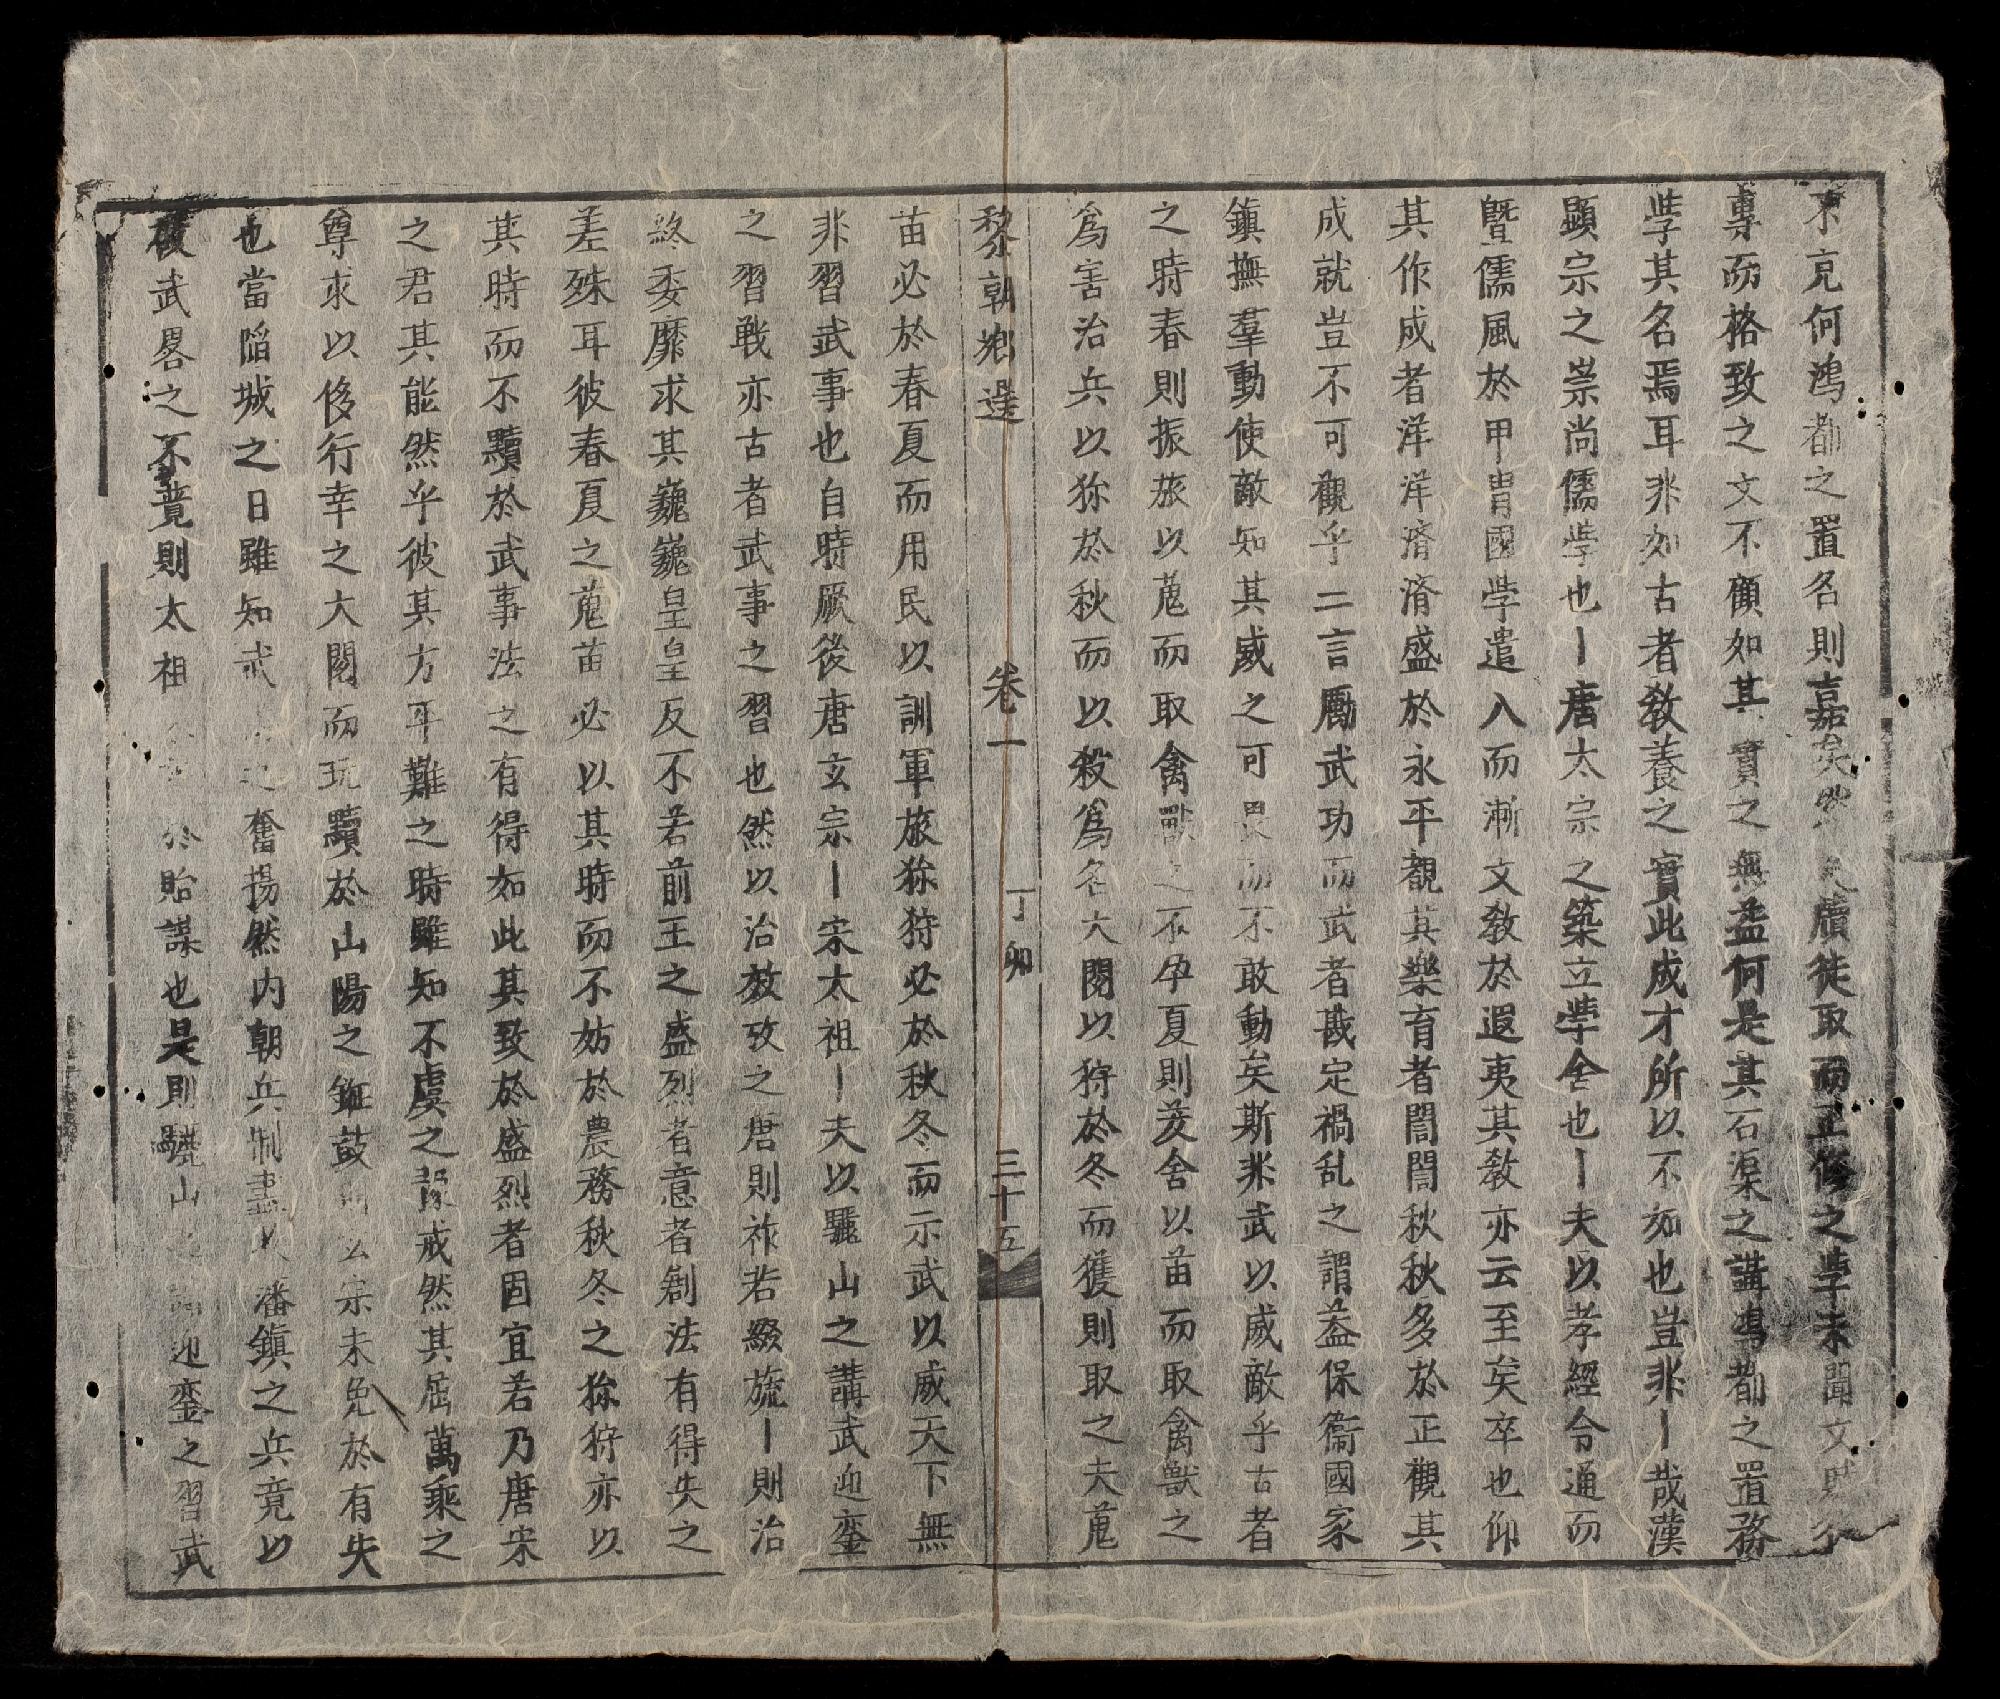 不克何鴻都之置名則嘉矣 牘徒取而正修之學未聞文
專而格致之文不顧如其實之無益何是其石渠之講鴻都之置務
學其名焉耳非如古者敎養之實此成才所以不如也豈非丨哉漢
顯宗之崇尚儒學也丨唐太宗之築立學舍也丨夫以孝經令通而
曁儒風於甲胄國學遣入而漸文敎於遐夷其敎亦云至矣卒也仰
其作成者洋洋濟濟盛於永平覩其樂育者誾誾秋秋多於正觀其
成就豈不可觀乎二言勵武功而武者戡定禍乱之謂盖保衞國家
鎭撫羣動使敵知其威之可畏而不敢動矣斯非武以威敵乎古者
之時春則振旅以蒐而取禽獸之不孕夏則茇舍以苗而取禽獸之
爲害治兵以狝於秋而以殺爲名大閱以狩於冬而獲則取之夫蒐
黎朝鄕選 卷一 丁卯 三十五
苗必於春夏而用民以訓軍旅狝狩必於秋冬而示武以威天下無
非習武事也自時厥後唐玄宗丨宋太祖丨夫以驪山之講武迎鑾
之習戰亦古者武事之習也然以治放攷之唐則祚若綴旒丨則治
終委靡求其巍巍皇皇反不若前王之盛烈者意者剏法有得失之
差殊耳彼春夏之蒐苗必以其時而不妨於農務秋冬之狝狩亦以
其時而不黷於武事法之有得如此其致於盛烈者固宜若乃唐宋
之君其能然乎彼其方平難之時雖知不虞之豫戒然其屈萬乘之
尊求以侈行幸之大閱而玩黷於山陽之鉦鼓 玄宗未免於有失
也當陷城之日雖知戒 之奮揚然內朝兵制盡以潘鎭之兵竟以
複武畧之不竟則太祖 於貽謀也是則驪山之講迎鑾之習武